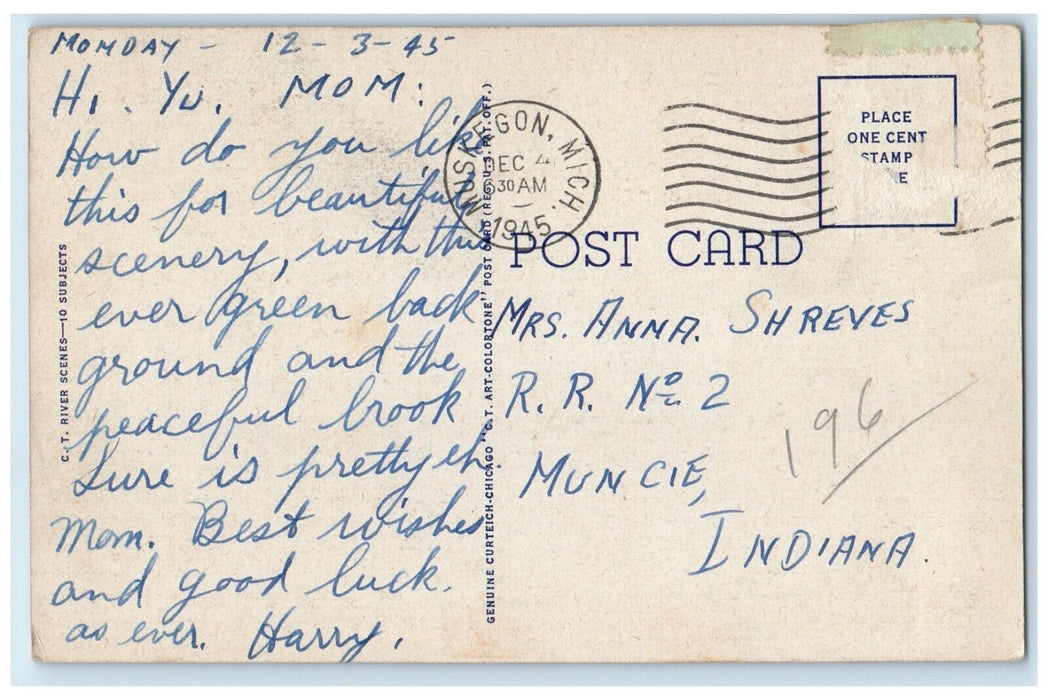 MONDAY - 12-3-45
Hi. Yu. MOM:
How do you like
this for beautiful
scenery, with this
ever green back
ground and the
peaceful brook
Sure is pretty eh
Mom. Best wishes
and good luck.
as ever. Harry.
C. T. RIVER SCENES—10 SUBJECTS
GENUINE CURTEICH-CHICAGO "C. T. ART-COLORTONE" POST CARD (REG. U. S. PAT. OFF.)
MUSKEGON, MICH.
DEC 4
30 AM
1945
PLACE
ONE CENT
STAMP
E
POST CARD
MRS. ANNA. SHREVES
R. R. No. 2
MUNCIE,
INDIANA.
196/